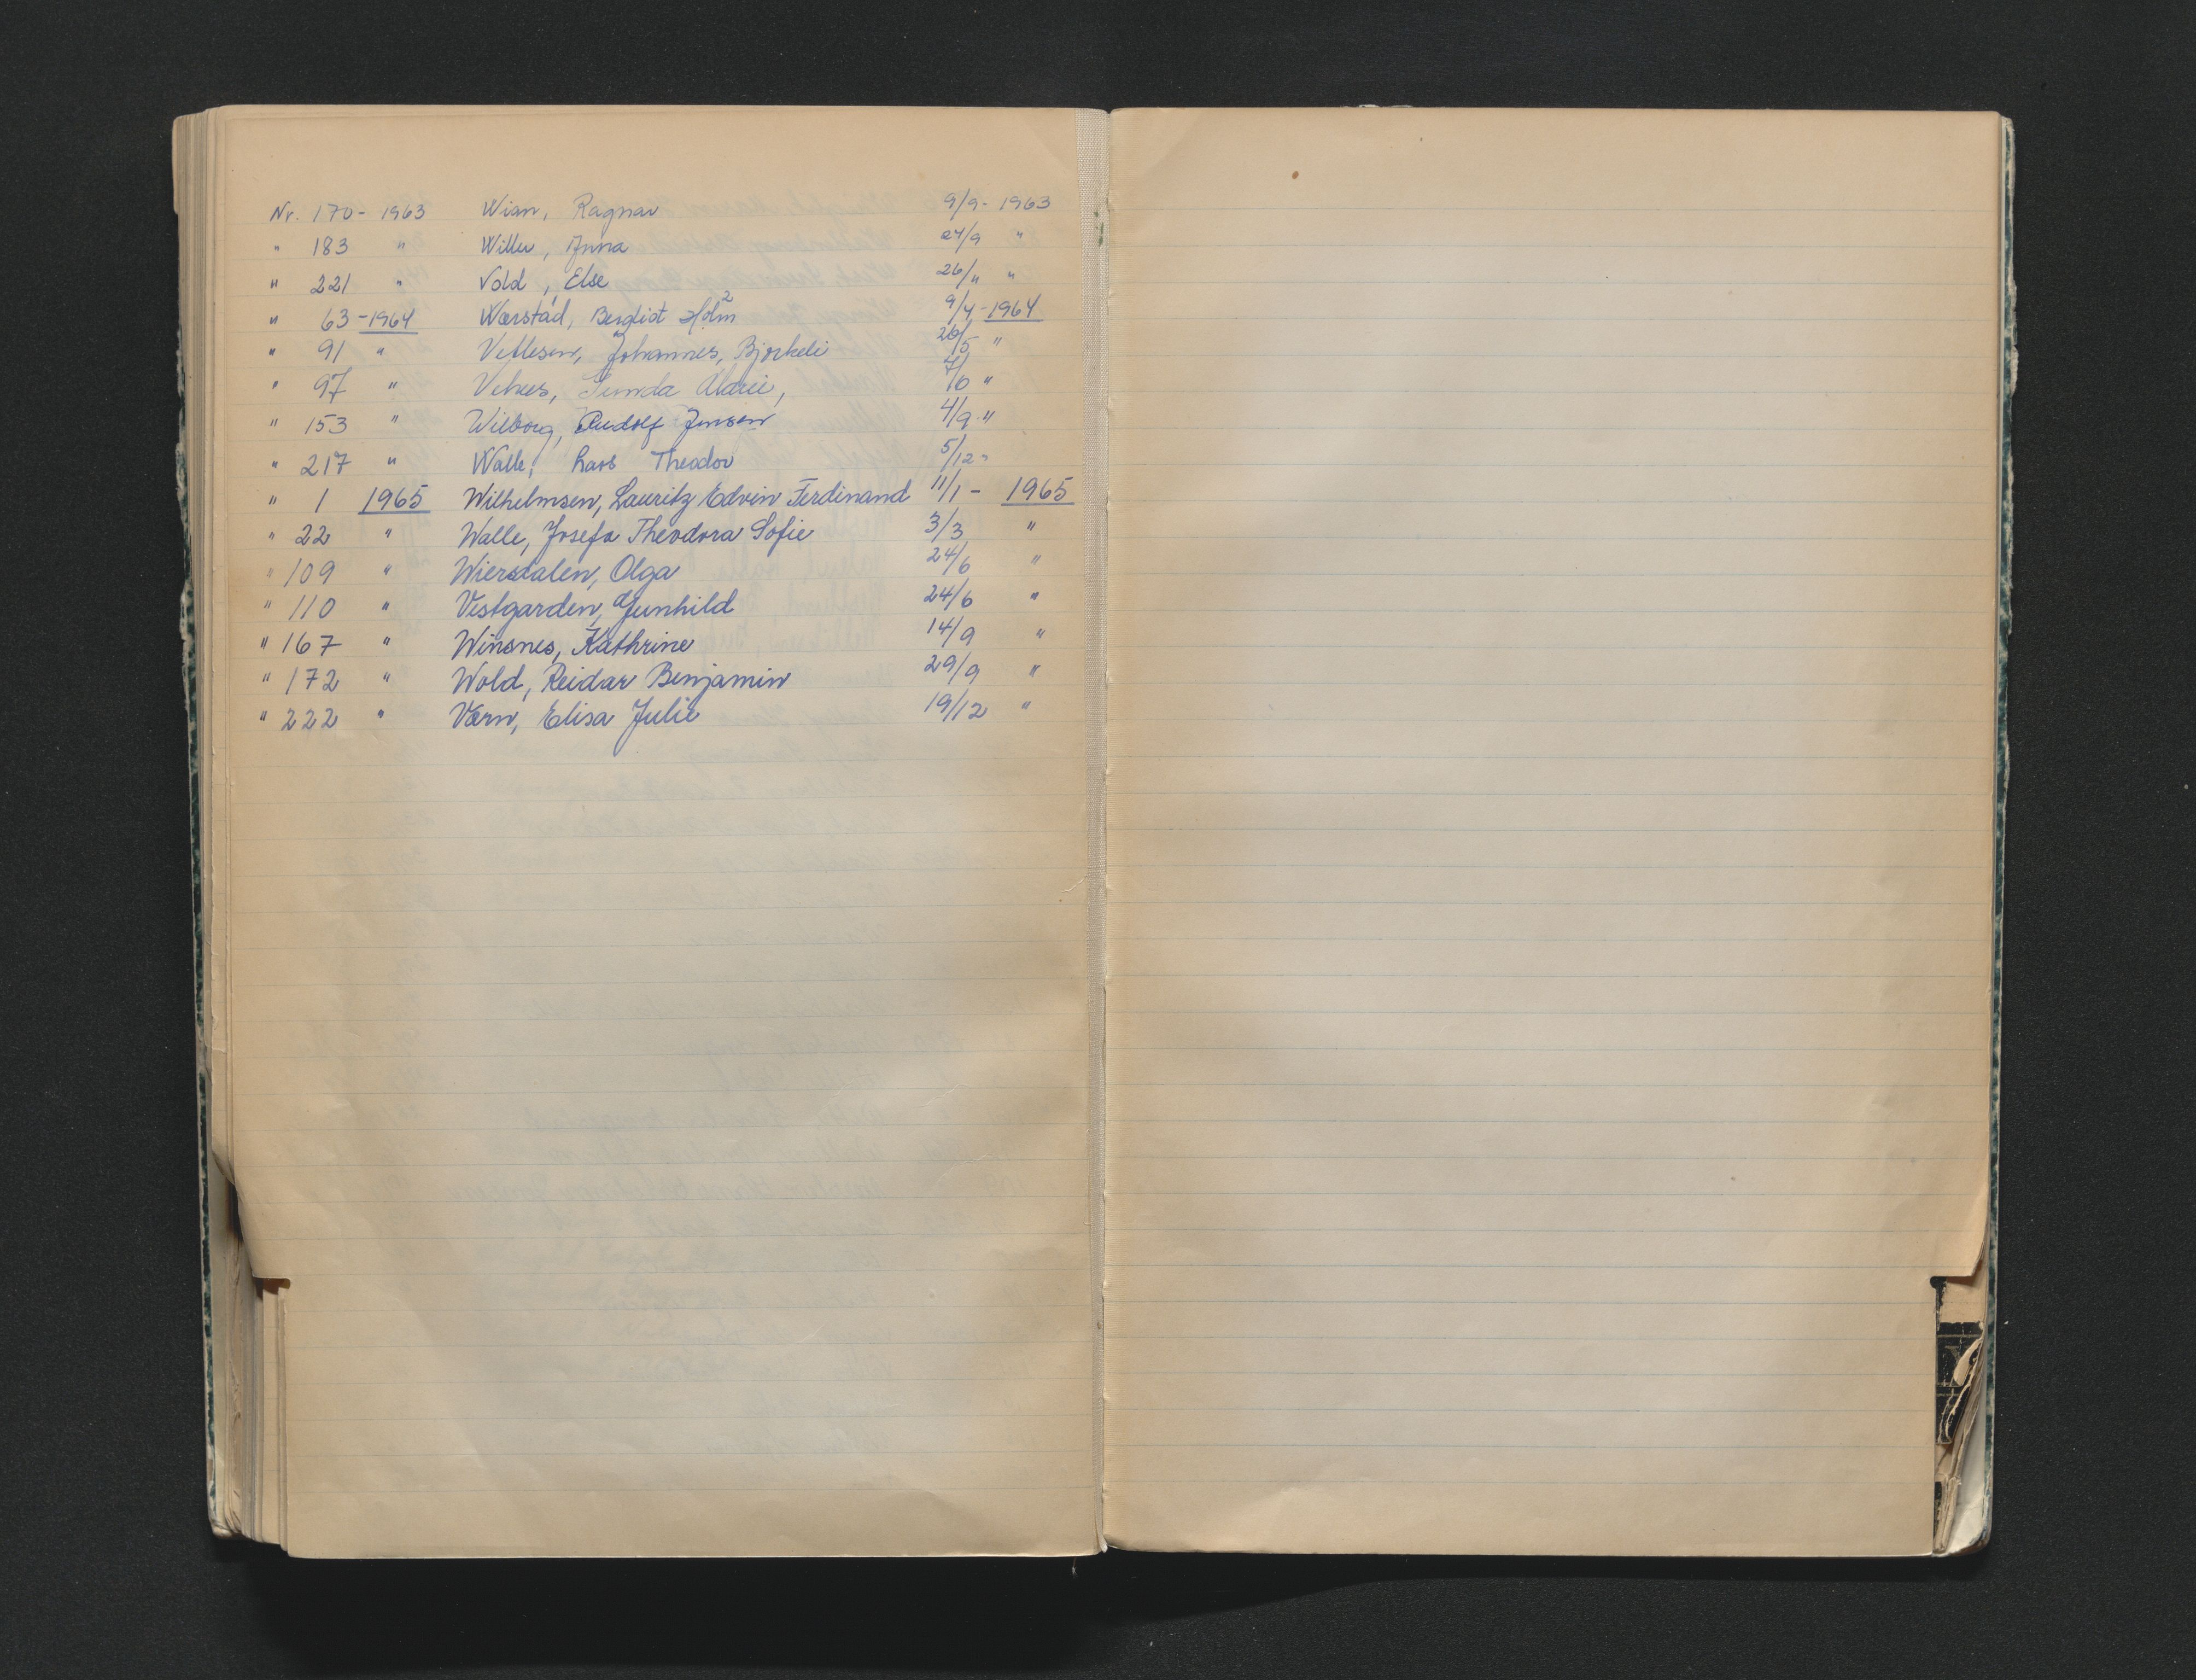 Nr. 170 - 1963 Wian, Ragnar 9/9 - 1963
" 183 " Willu, Anna 24/9 "
" 221 " Vold, Else 26/11 "
" 63 - 1964 Wærstad, Bergliot Holm 9/4 - 1964
" 91 " Vetlesen, Johannes, Bjorkeli 26/5 "
" 97 " Gunda Marie, 7/6 "
" 153 " Wilborg, Rudolf Jensen 4/9 "
" 217 " Walle, Lars Theodor 5/12 "
" 1 1965 Wilhelmsen, Lauritz Edvin Ferdinand 11/1 - 1965
" 22 " Walle, Josefa Theodora Sofie 3/3 "
" 109 " Wiersdalen, Olga 24/6 "
" 110 " Vestgarden, Gunhild 24/6 "
" 167 " Winsnes, Kathrine 14/9 "
" 172 " Wold, Reidar Benjamin 29/9 "
" 222 " Værn, Elisa Julie 19/12 "